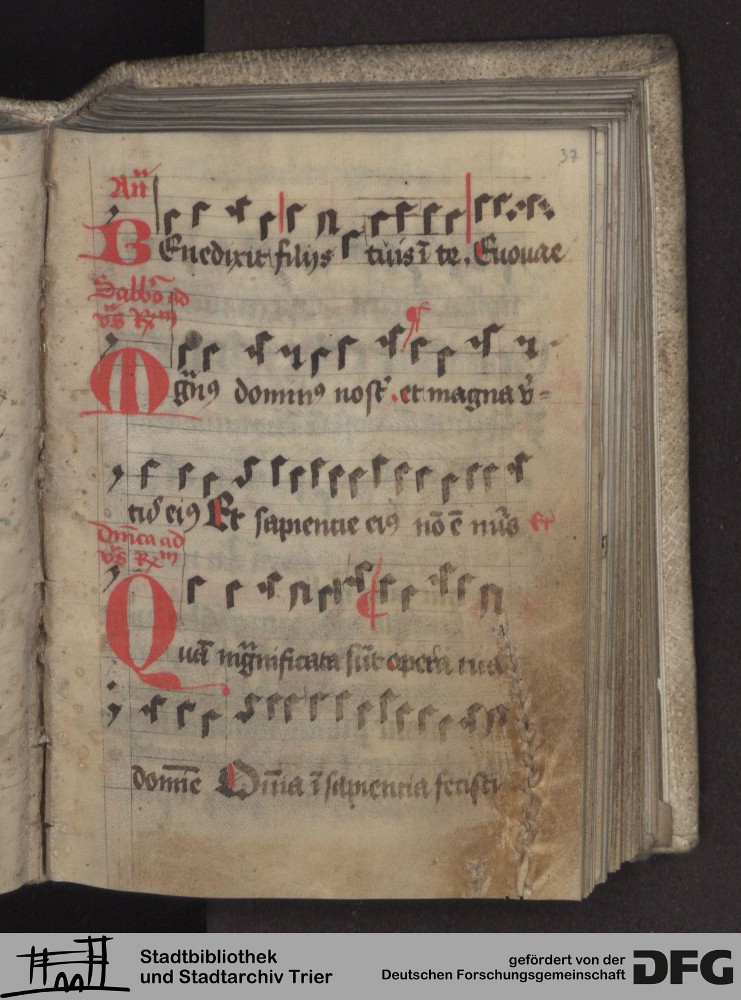 37
Añ
Benedixit filiis tuis ī te. Euouae
Sabbō ad
vs̄ Rm
Mgn̄9 domin9 nost̄. et magna v̄=
tus eius Et sapientie ei9 nō ē nūs Et
Dm̄ca ad
vs̄ Rm
Quā mgnificata sūt opera tua
domīe Om̄ia ī sapientia fecisti
Stadtbibliothek
und Stadtarchiv Trier
gefördert von der
Deutschen Forschungsgemeinschaft
DFG